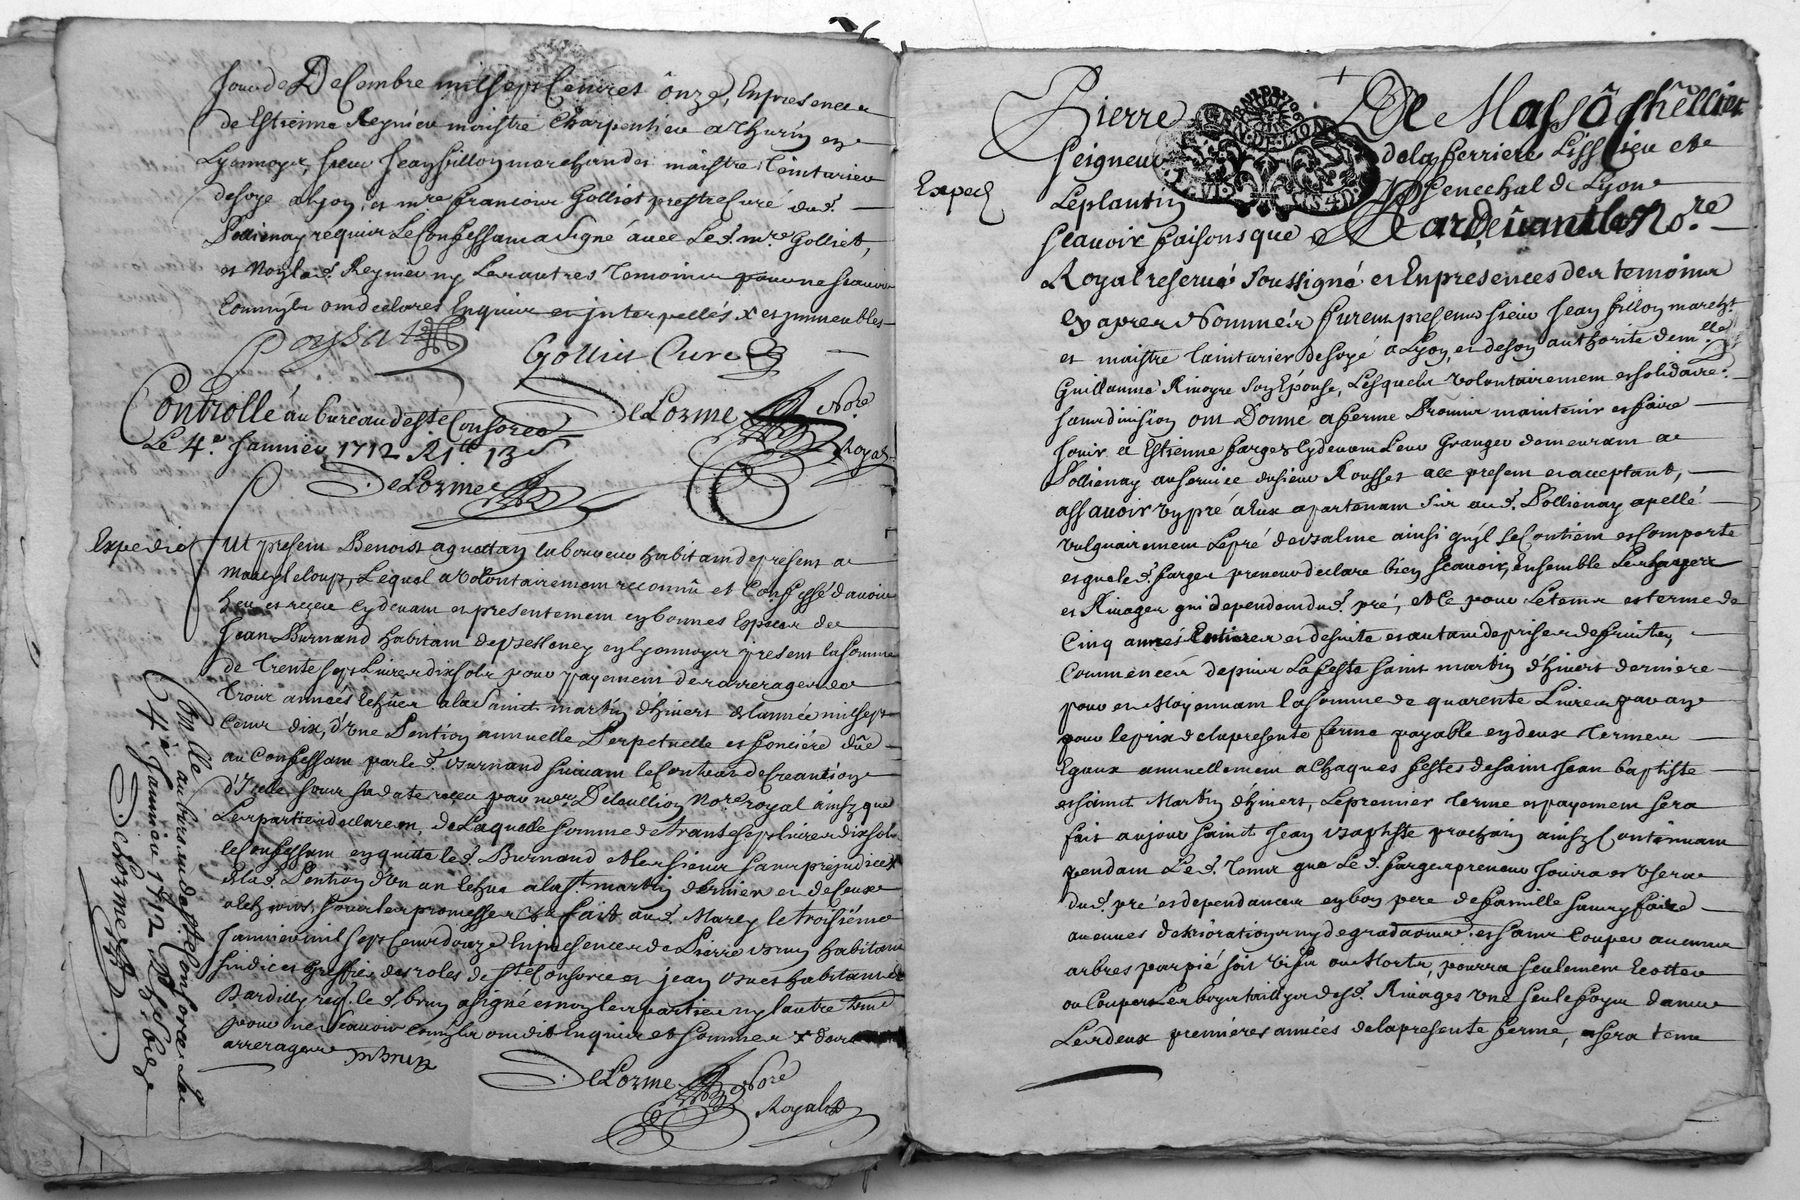 Jour de Decembre mil sept Cent et onze, En presence
de Estienne Reynieu maistre Charpentieu a Thurin en
Lyonnoys, sieur Jean fillon marchand et maistre Teinturieu
de soye a Lyon, et mre francois Golliet prestre Curé dud.
Pollienay requis Le Confessant a signé avec Led. mre Golliet,
et non led. Reynieu ny Les autres Temoins pour ne scavoir
Comm'ils ont declaré Enquis et interpellés x et immeubles
Golliet Curé
DeLorme No.re
Royal
Controllé au bureau de ste Consorce
Le 4.e Janvieu 1712 R 13 s
DeLorme
Expedié
fut present Benoist laboureur habitant de present a
Marcy le loup, Lequel a volontairement reconnu et Confessé d'avoir
heu et receu cy devant et presentement en bonnes Especes de
Jean Burnand habitant de Vessoney en Lyonnoys present la somme
de Trente sept Livres dix sols pour payement des arrerages de
Trois années echues a la Saint martin d'hivert de l'année mil sept
Cent dix, d'une Pention annuelle Perpetuelle et fonciére düe
au Confessant par led. Burnand suivant le Contrat de Creation
d'Icelle sous sa date receu par me Delaullion Nore royal ainsy que
Les parties declarent, de Laquelle somme de trante sept livres dix sols
le Confessant en quitte led. Burnand et les siens sans prejudice
de lad. Pention d'un an echue a la st martin dernier et de ceux
a echeoir, sous les promesses &a fait aud. Marcy le troisiéme
Janvier mil sept Cent douze En presence de Pierre brun habitant
sindic et Greffier des roles de ste Consorce et jean habitant de
Dardilly req. le d. brun a signé et non les parties ny l'autre tem
pour ne scavoir comm'ils ont dit Enquis et sommés x
arrerages Brun
DeLorme Nore
Royal
Con.lle au bureau de ste Consorce Le
4.e Janvieu 1712
DeLorme
Expedi
Pierre De Massô chêllier
Seigneur de la ferriere Lissieu et
Le plantin Senechal de Lyon
scavoir faisons que Pardevant le No.re
Royal reservé soussigné et En presences des temoins
cy apres Nommés furent presens sieur Jean fillon march.t
et maistre tainturier de soye a Lyon, et de son authorité dem.lle
Guillaume Rivoyre son Epouse, Lesquels volontairement et solidaire.t
sans division ont Donné a ferme Promis maintenir et faire
Jouir a Estienne farges cy devant Leur Granger demeurant a
Pollienay au service du sieur Rousset ace present et acceptant,
assavoir un pré a Eux apartenant sis aud. Pollienay apellé
vulguairement Le pré de ainsi qu'il se Contient et Comporte
et que led. farges preneur declare bien scavoir, ensemble Les
et Rivages qui dependent dud. pré, et Ce pour Le tems et terme de
Cinq années Entieres et de suite et autant de prises de fruits,
Commencés depuis La feste saint martin d'hivert derniere
pour et Moyennant la somme de quarente Livres par an
pour le prix de la presente ferme payable en deux Termes
Egaux annuellement a Chaques festes de saint Jean baptiste
et saint Martin d'hivert, Le premier Terme et payement sera
fait au jour saint Jean baptiste prochain ainsy Continuant
pendant Le d. Tems que Le d. farges preneur Jouira et Usera
du d. pré et dependances en bon pere de famille sans y faire
aucunes deteriorations ny degradations et sans Couper aucuns
arbres par pié soit vifs ou Morts, pourra seulement Ecotter
ou Couper Les boys taillys desd. Rivages une seule foys dans
Les deux premieres années de la presente ferme, sera tenu